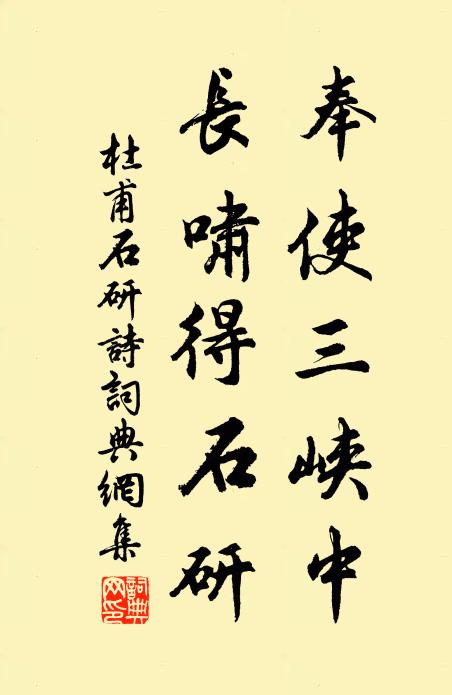 奉使三峽中
長嘯得石研
杜甫石研詩詞典網集
詞典网印